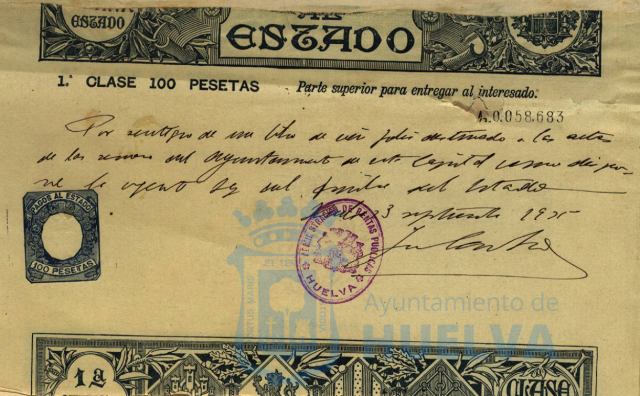 AL
ESTADO
ESTADO
1.ª CLASE 100 PESETAS
Parte superior para entregar al interesado.
A.0.058.683
Por reintegro de un libro de cien folios destinado a las actas
de las sesiones del Ayuntamiento de esta Capital como dispone
la vigente ley del Timbre del Estado
Huelva 3 septiembre 19
PAGOS AL ESTADO
100 PESETAS
DE RENTAS PUBLICAS
HUELVA
Ayuntamiento de
HUELVA
1ª
CLASE